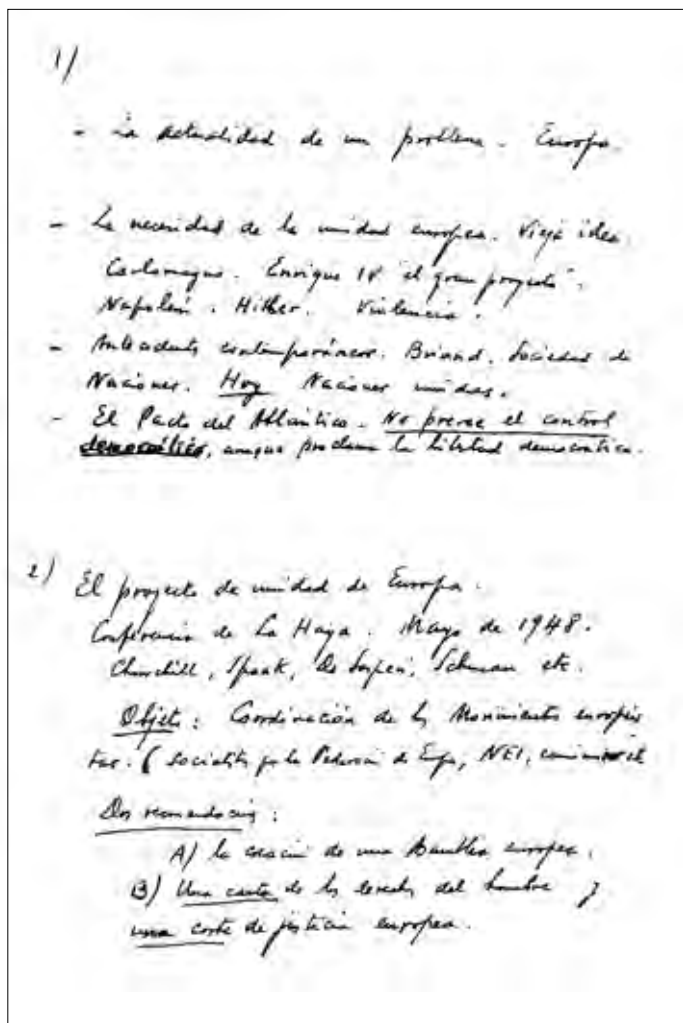 1/
- La actualidad de un problema. Europa.
- La necesidad de la unidad europea. Vieja idea.
Carlomagno. Enrique IV "el gran proyecto".
Napoleón. Hitler. Violencia.
- Antecedentes contemporáneos. Briand. Sociedad de
Naciones. Hoy Naciones unidas.
- El Pacto del Atlántico. No prevee el control
democrático, aunque proclama la libertad democrática.
2) El proyecto de unidad de Europa.
Conferencia de La Haya. Mayo de 1948.
Churchill, Spaak, De Gasperi, Schuman etc.
Objeto: Coordinación de los Movimientos europeis
tas. ( Socialistas por la Federación de Europa, NEI,
Dos recomendaciones:
A) la creación de una Asamblea europea.
B) Una carta de los derechos del hombre y
una corte de justicia europea.